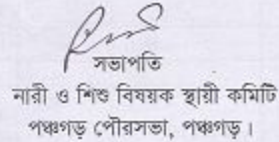 সভাপতি
নারী ও শিশু বিষয়ক স্থায়ী কমিটি
পঞ্চগড় পৌরসভা, পঞ্চগড়।